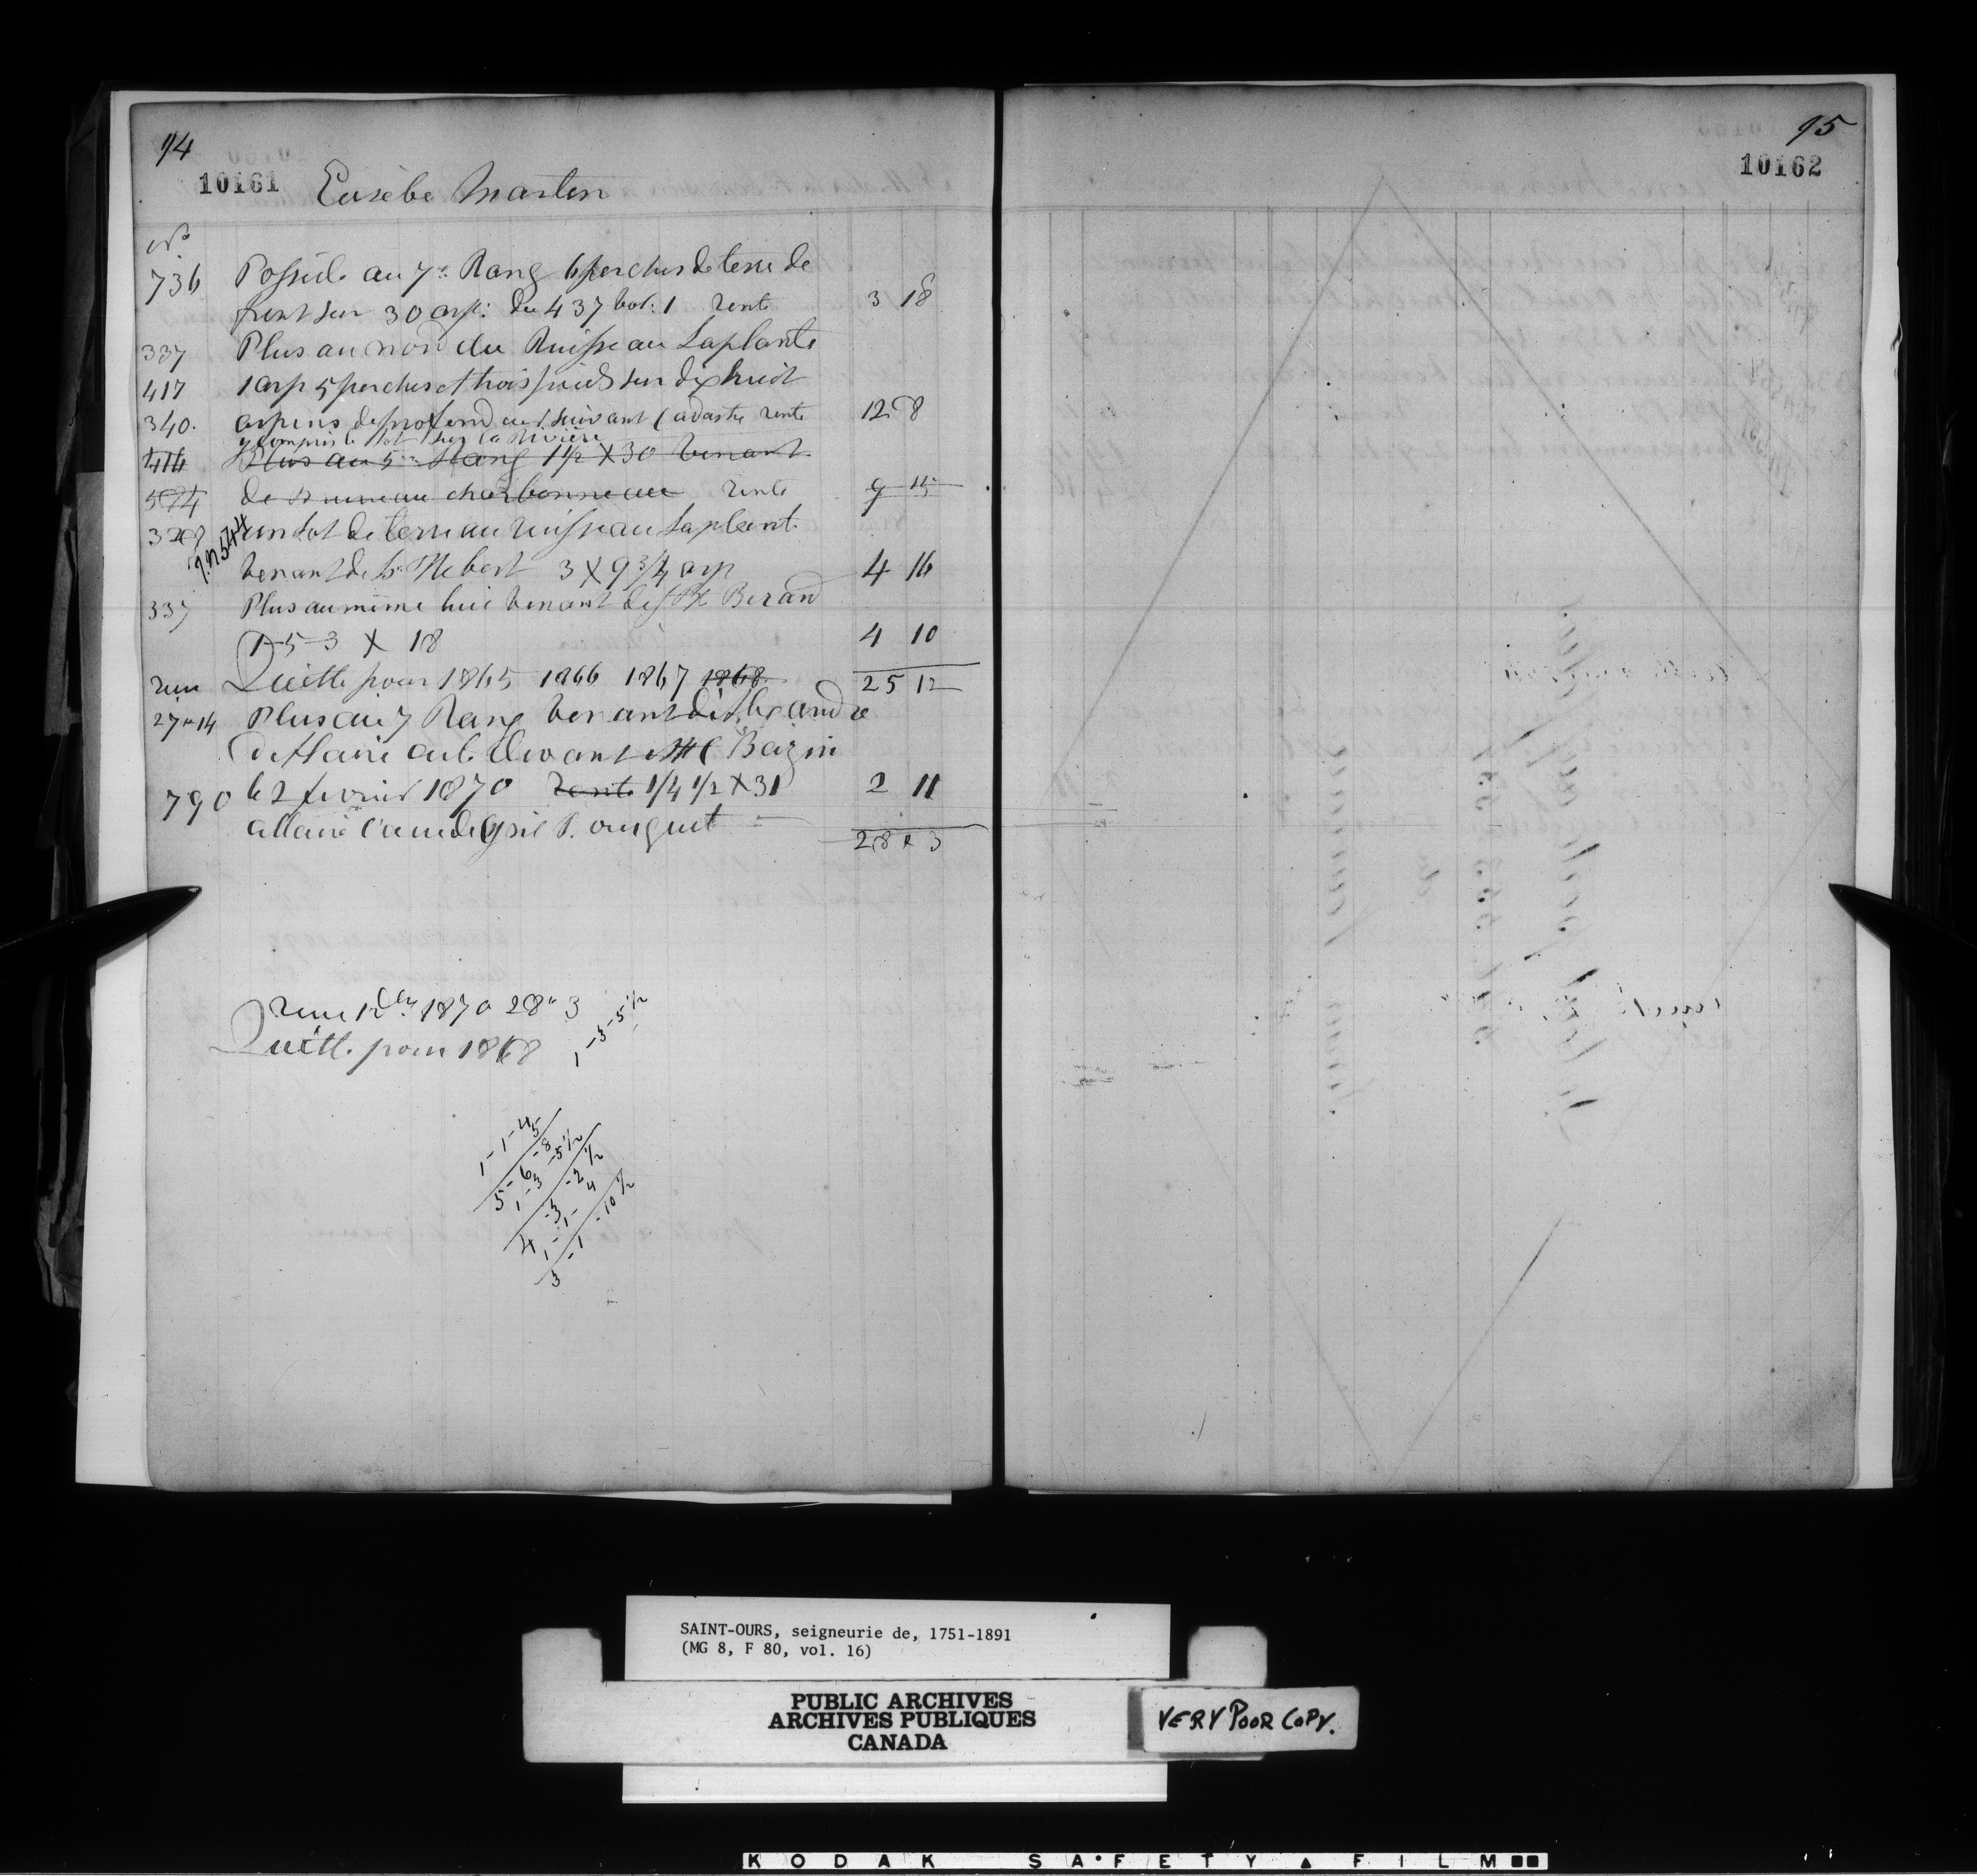 94
10161 Eusèbe Martin
No
736 Possède au 7e Rang 6 perches de terre de
front sur 30 arp: du 437 vol: 1 rente 3 18
337 Plus au nord du Ruisseau Laplante
417 1 arp 5 perches et trois pieds sur dix huit
340. arpens de profondeur suivant Cadastre rente 12 8
y compris le lot sur la Rivière
414 Plus au 5me Rang 1 1/2 X 30 venant
574 de charbonneau rente 9 15
328 un Lot de terre au ruisseau Laplante
venant de Hebert 3 X 9 3/4 arp 4 16
337 Plus au même lieu venant de Berard
1-5-3 X 18 4 10
Quitte pour 1865 1866 1867 1868 25 12
27 " 14 Plus au 7 Rang venant
Bazin
790 le 2 fevrier 1870 Rente 1/4 1/2 X 31 2 11
28 " 3
1870 28 " 3
Quitte pour 1868
1-3-5 1/2
1-1-45
5-6-8
1-3-5 1/2
4-3-2 1/2
1-1-4
3-1-10 1/2
95
10162
SAINT-OURS, seigneurie de, 1751-1891
(MG 8, F 80, vol. 16)
PUBLIC ARCHIVES
ARCHIVES PUBLIQUES
CANADA
VERY POOR COPY.
KODAK SAFETY FILM